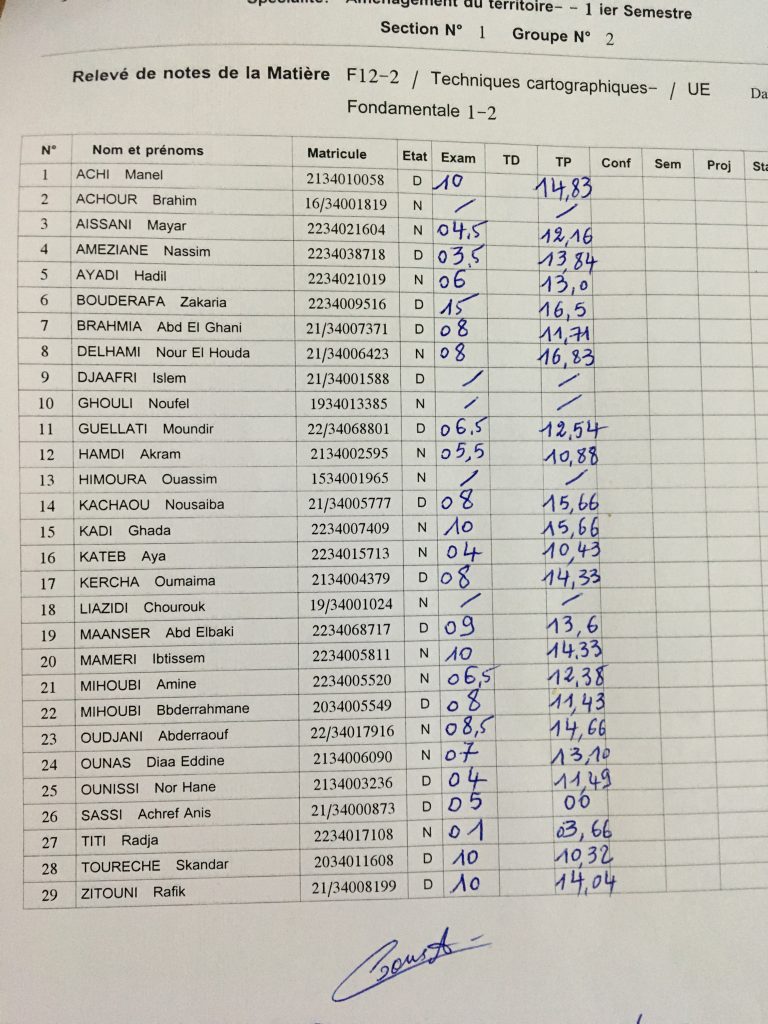 Spécialité: Aménagement du territoire- - 1 ier Semestre
Section N° 1 Groupe N° 2
Relevé de notes de la Matière F12-2 / Techniques cartographiques- / UE
Fondamentale 1-2
N° Nom et prénoms Matricule Etat Exam TD TP Conf Sem Proj
1 ACHI Manel 2134010058 D 10 14,83
2 ACHOUR Brahim 16/34001819 N / /
3 AISSANI Mayar 2234021604 N 04,5 12,16
4 AMEZIANE Nassim 2234038718 D 03,5 13,84
5 AYADI Hadil 2234021019 N 06 13,0
6 BOUDERAFA Zakaria 2234009516 D 15 16,5
7 BRAHMIA Abd El Ghani 21/34007371 D 08 11,71
8 DELHAMI Nour El Houda 21/34006423 N 08 16,83
9 DJAAFRI Islem 21/34001588 D / /
10 GHOULI Noufel 1934013385 N / /
11 GUELLATI Moundir 22/34068801 D 06,5 12,54
12 HAMDI Akram 2134002595 N 05,5 10,88
13 HIMOURA Ouassim 1534001965 N / /
14 KACHAOU Nousaiba 21/34005777 D 08 15,66
15 KADI Ghada 2234007409 N 10 15,66
16 KATEB Aya 2234015713 N 04 10,43
17 KERCHA Oumaima 2134004379 D 08 14,33
18 LIAZIDI Chourouk 19/34001024 N / /
19 MAANSER Abd Elbaki 2234068717 D 09 13,6
20 MAMERI Ibtissem 2234005811 N 10 14.33
21 MIHOUBI Amine 2234005520 N 06,5 12,38
22 MIHOUBI Bbderrahmane 2034005549 D 08 11,43
23 OUDJANI Abderraouf 22/34017916 N 08,5 14,66
24 OUNAS Diaa Eddine 2134006090 N 07 13,10
25 OUNISSI Nor Hane 2134003236 D 04 11,49
26 SASSI Achref Anis 21/34000873 D 05 00
27 TITI Radja 2234017108 N 01 03,66
28 TOURECHE Skandar 2034011608 D 10 10,32
29 ZITOUNI Rafik 21/34008199 D 10 14,04